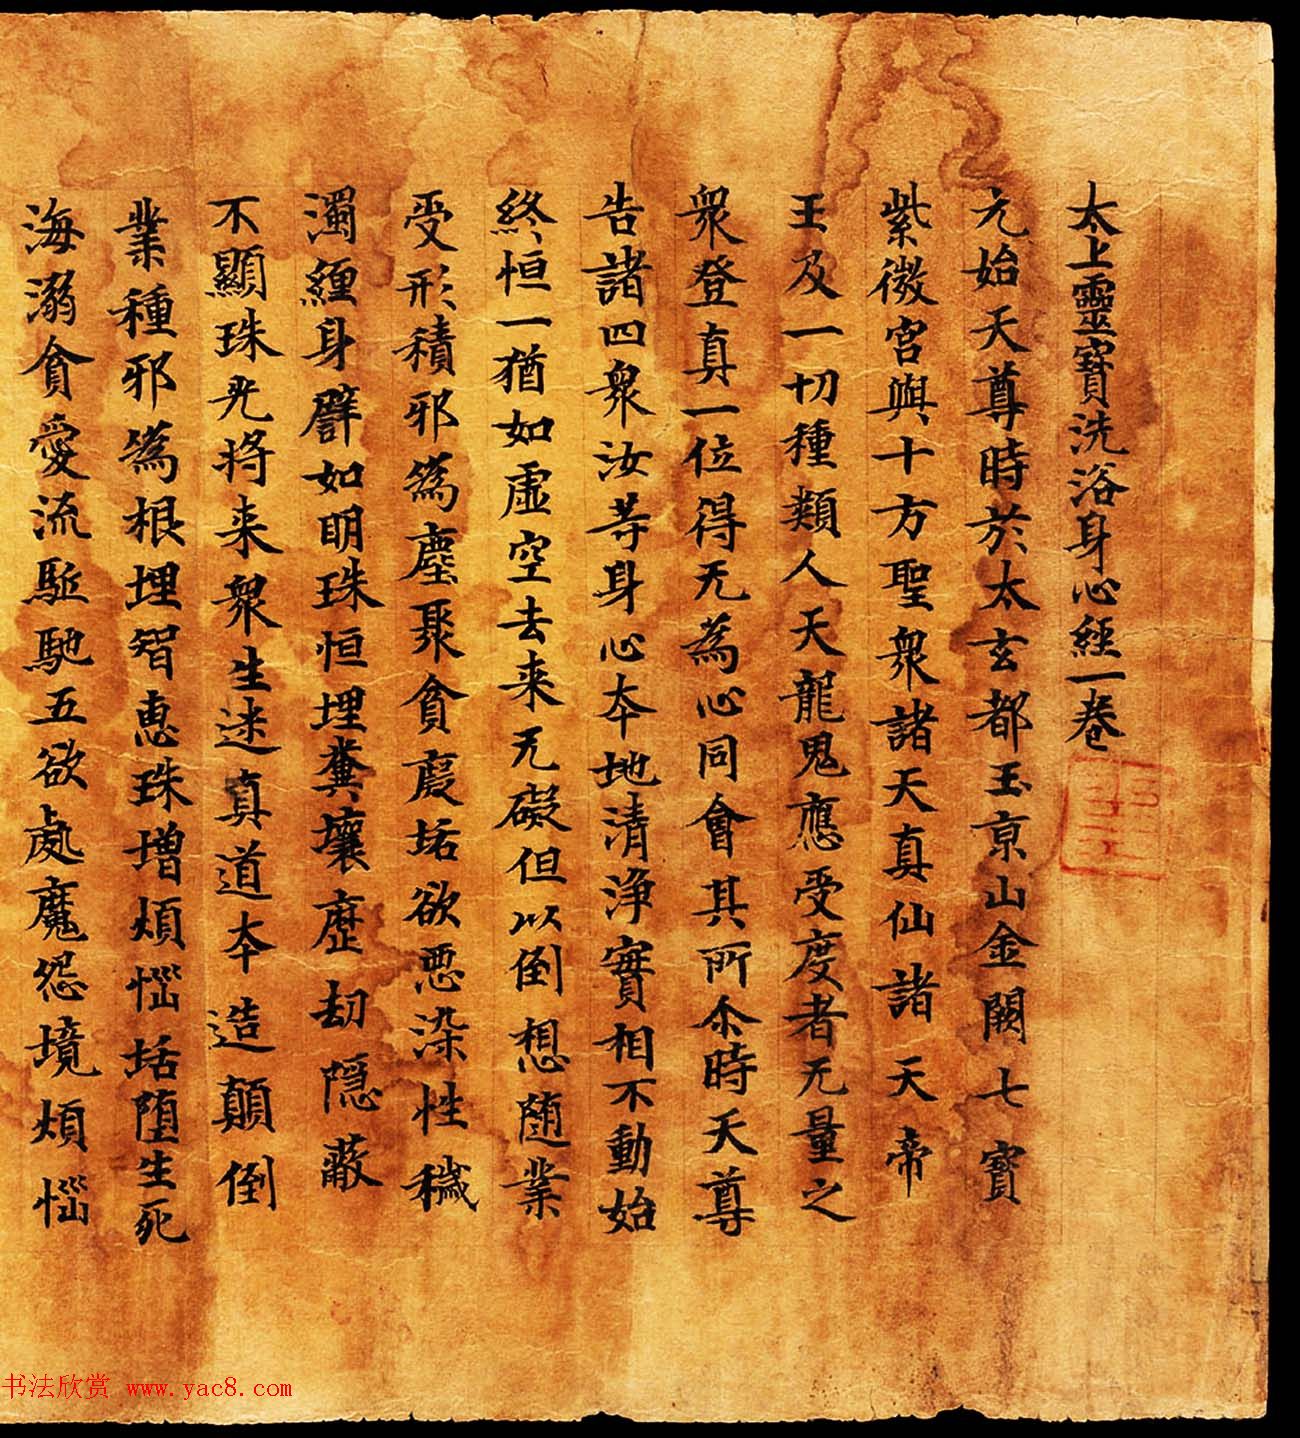 太上靈寶洗浴身心經一卷
元始天尊時於太玄都玉京山金闕七寶
紫微宮與十方聖衆諸天真仙諸天帝
王及一切種類人天龍鬼應受度者无量之
衆登真一位得无為心同會其所尒時天尊
告諸四衆汝等身心本地清淨實相不動始
終恒一猶如虛空去来无礙但以倒想随業
受形積邪為塵聚貪為垢欲惡染性穢
濁纏身譬如明珠恒埋糞壤歷劫隱蔽
不顯珠光将来衆生迷真道本造顛倒
業種邪為根埋智惠珠增煩惱垢墮生死
海溺貪愛流駈馳五欲處魔怨境煩惱
书法欣赏 www.yac8.com